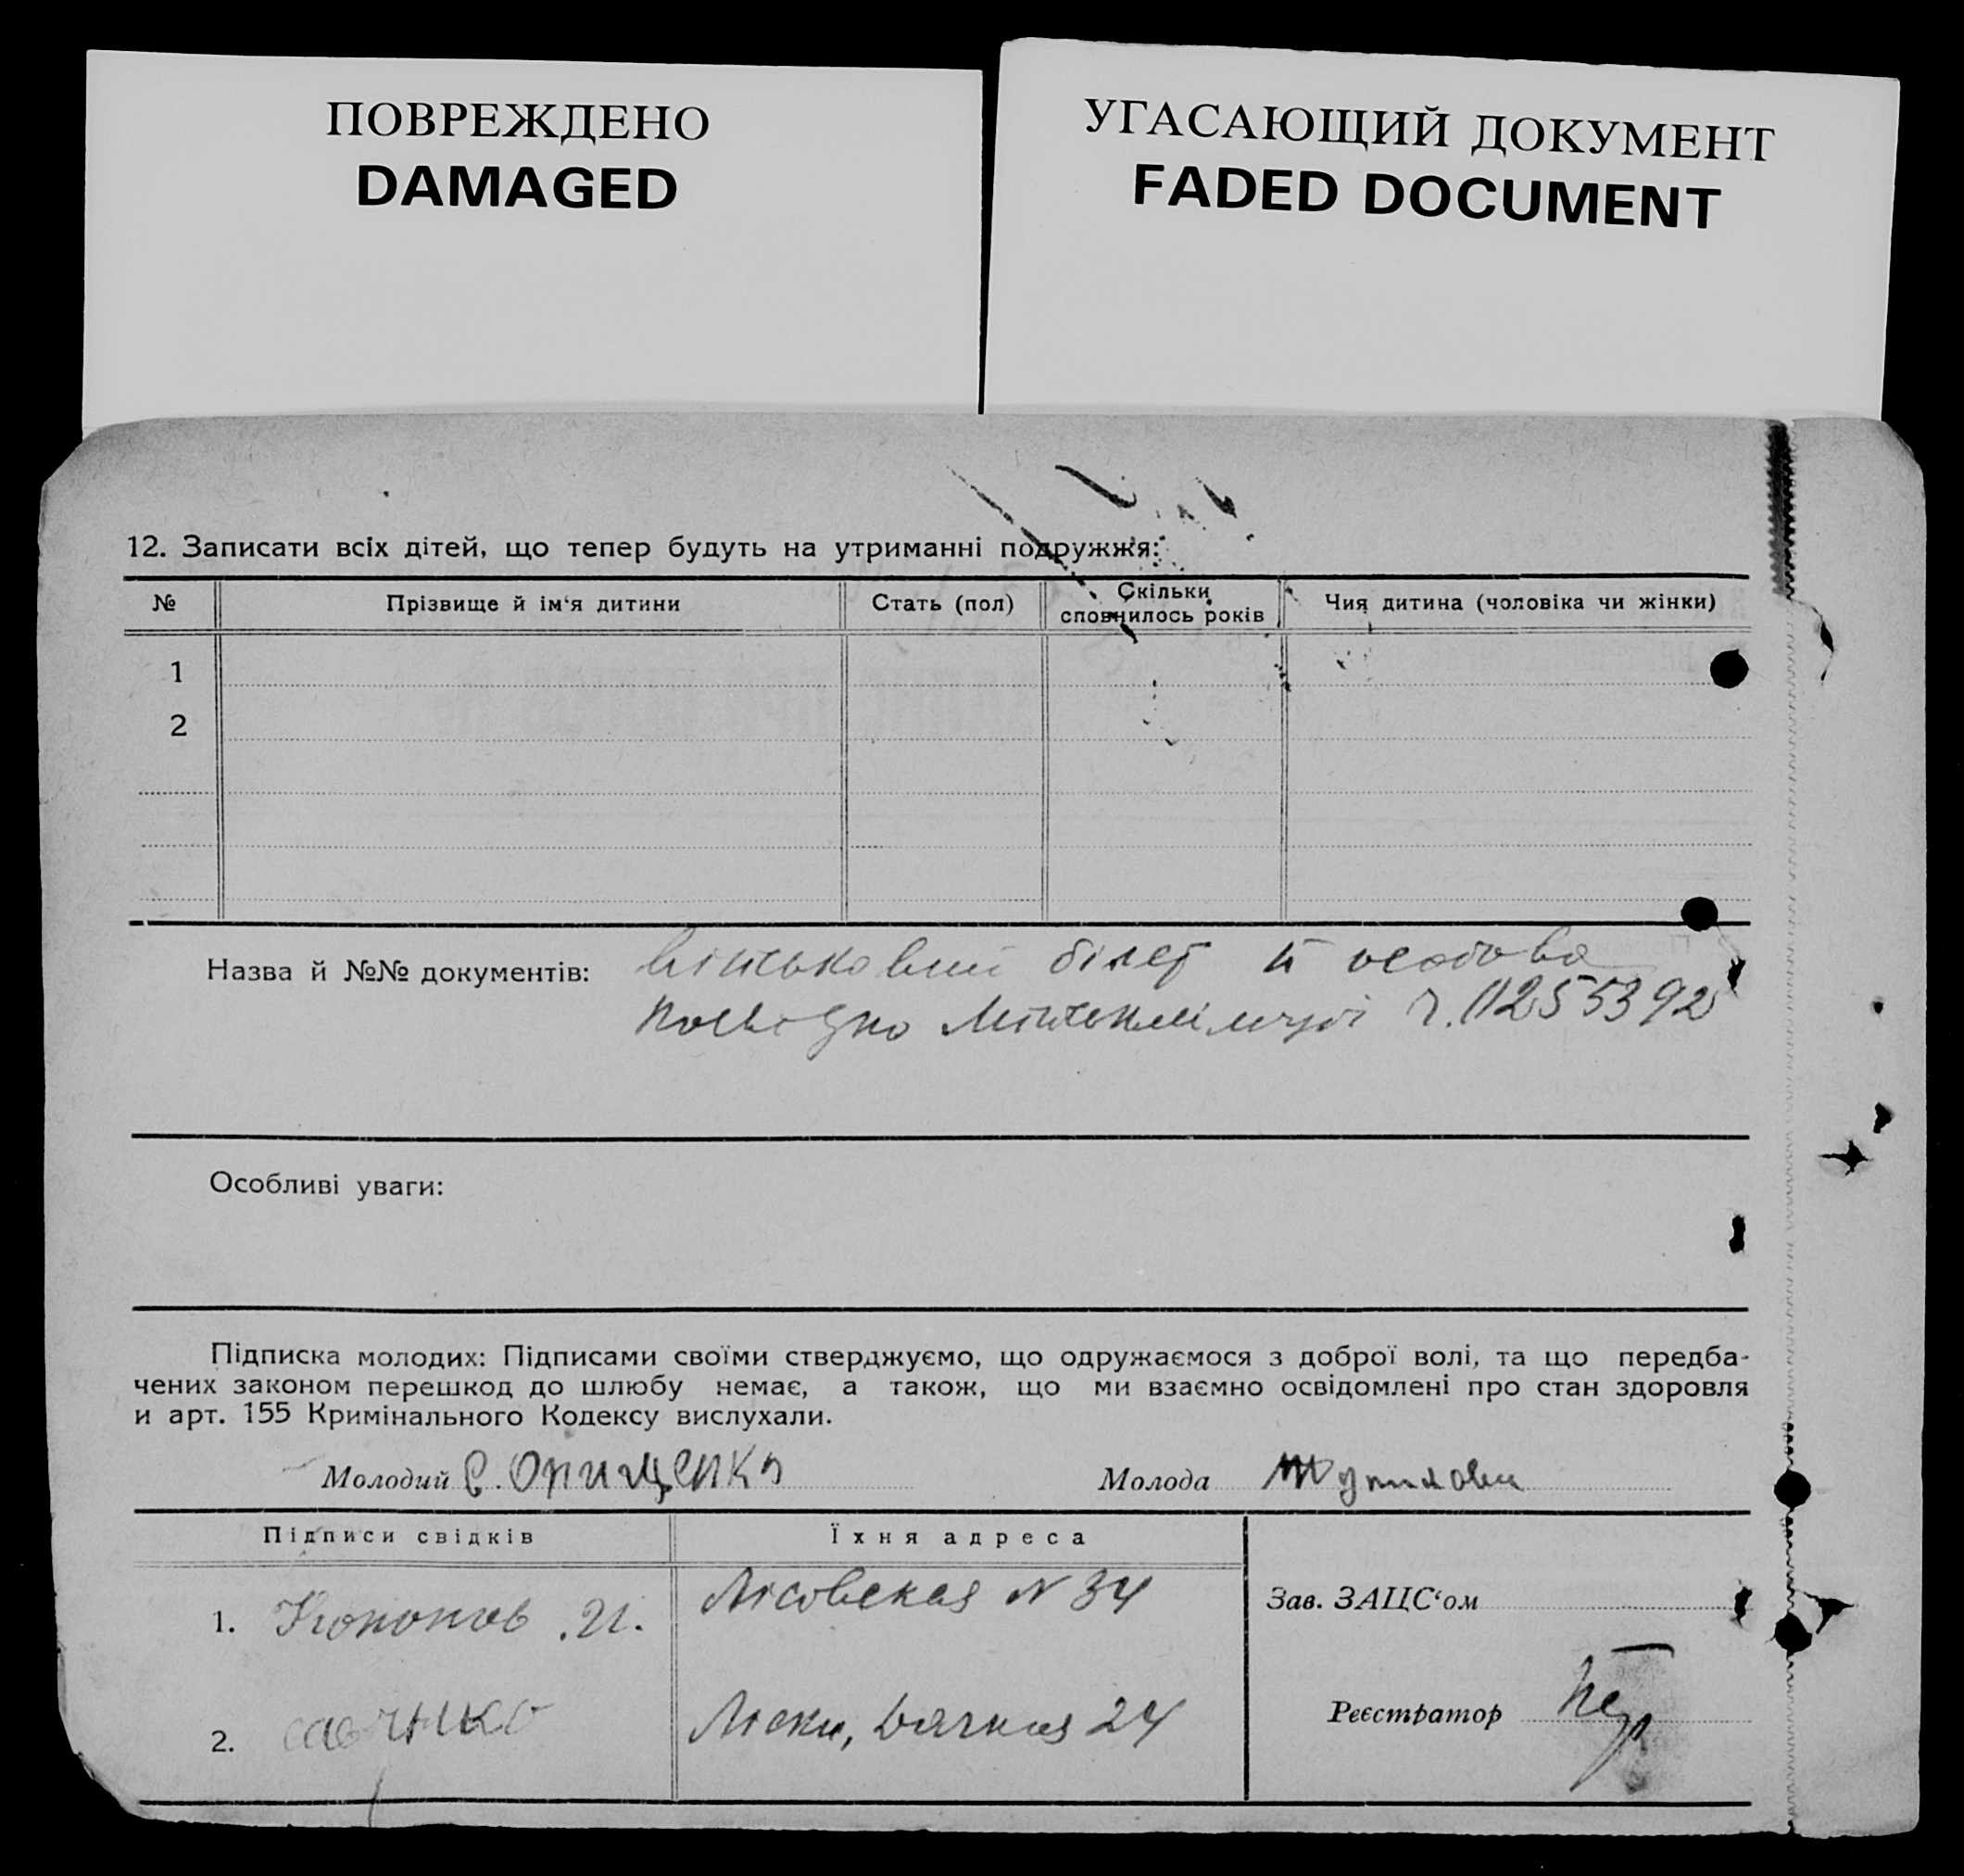 ПОВРЕЖДЕНО
DAMAGED
УГАСАЮЩИЙ ДОКУМЕНТ
FADED DOCUMENT
12. Записати всіх дітей, що тепер будуть на утриманні подружжя:
№ Прізвище й ім‘я дитини Стать (пол) Скільки сповнилось років Чия дитина (чоловіка чи жінки)
1
2
Назва й №№ документів: військовий білет й особова
посвідка ч. 0255392
Особливі уваги:
Підписка молодих: Підписами своїми стверджуємо, що одружаємося з доброї волі, та що передба-
чених законом перешкод до шлюбу немає, а також, що ми взаємно освідомлені про стан здоровля
и арт. 155 Кримінального Кодексу вислухали.
Молодий Є. Онищенко Молода
Підписи свідків Їхня адреса
1. Кононов .И. Лісовская N 34
Зав. ЗАЦС‘ом
2. Савчико Ліски, 24
Реєстратор